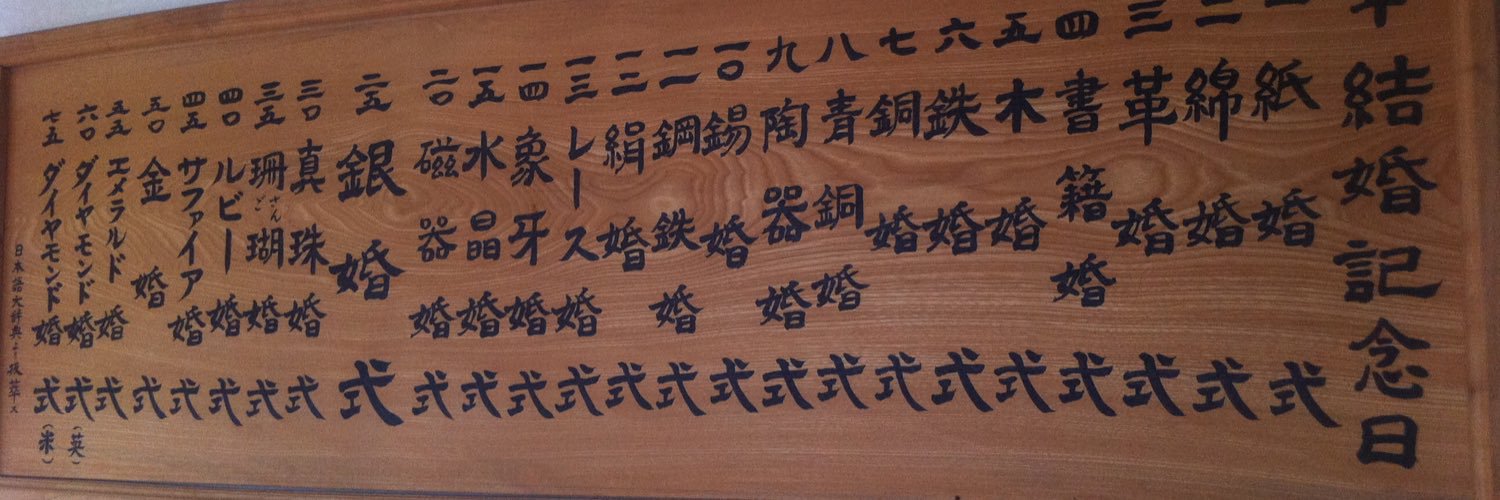 結婚記念日
一 紙婚式
二 綿婚式
三 革婚式
四 書籍婚式
五 木婚式
六 鉄婚式
七 銅婚式
八 青銅婚式
九 陶器婚式
一〇 錫婚式
一一 鋼鉄婚式
一二 絹婚式
一三 レース婚式
一四 象牙婚式
一五 水晶婚式
二〇 磁器婚式
二五 銀婚式
三〇 真珠婚式
三五 珊瑚婚式
さんご
四〇 ルビー婚式
四五 サファイア婚式
五〇 金婚式
五五 エメラルド婚式
六〇 ダイヤモンド婚式(英)
七五 ダイヤモンド婚式(米)
日本語大辞典より抜萃ス